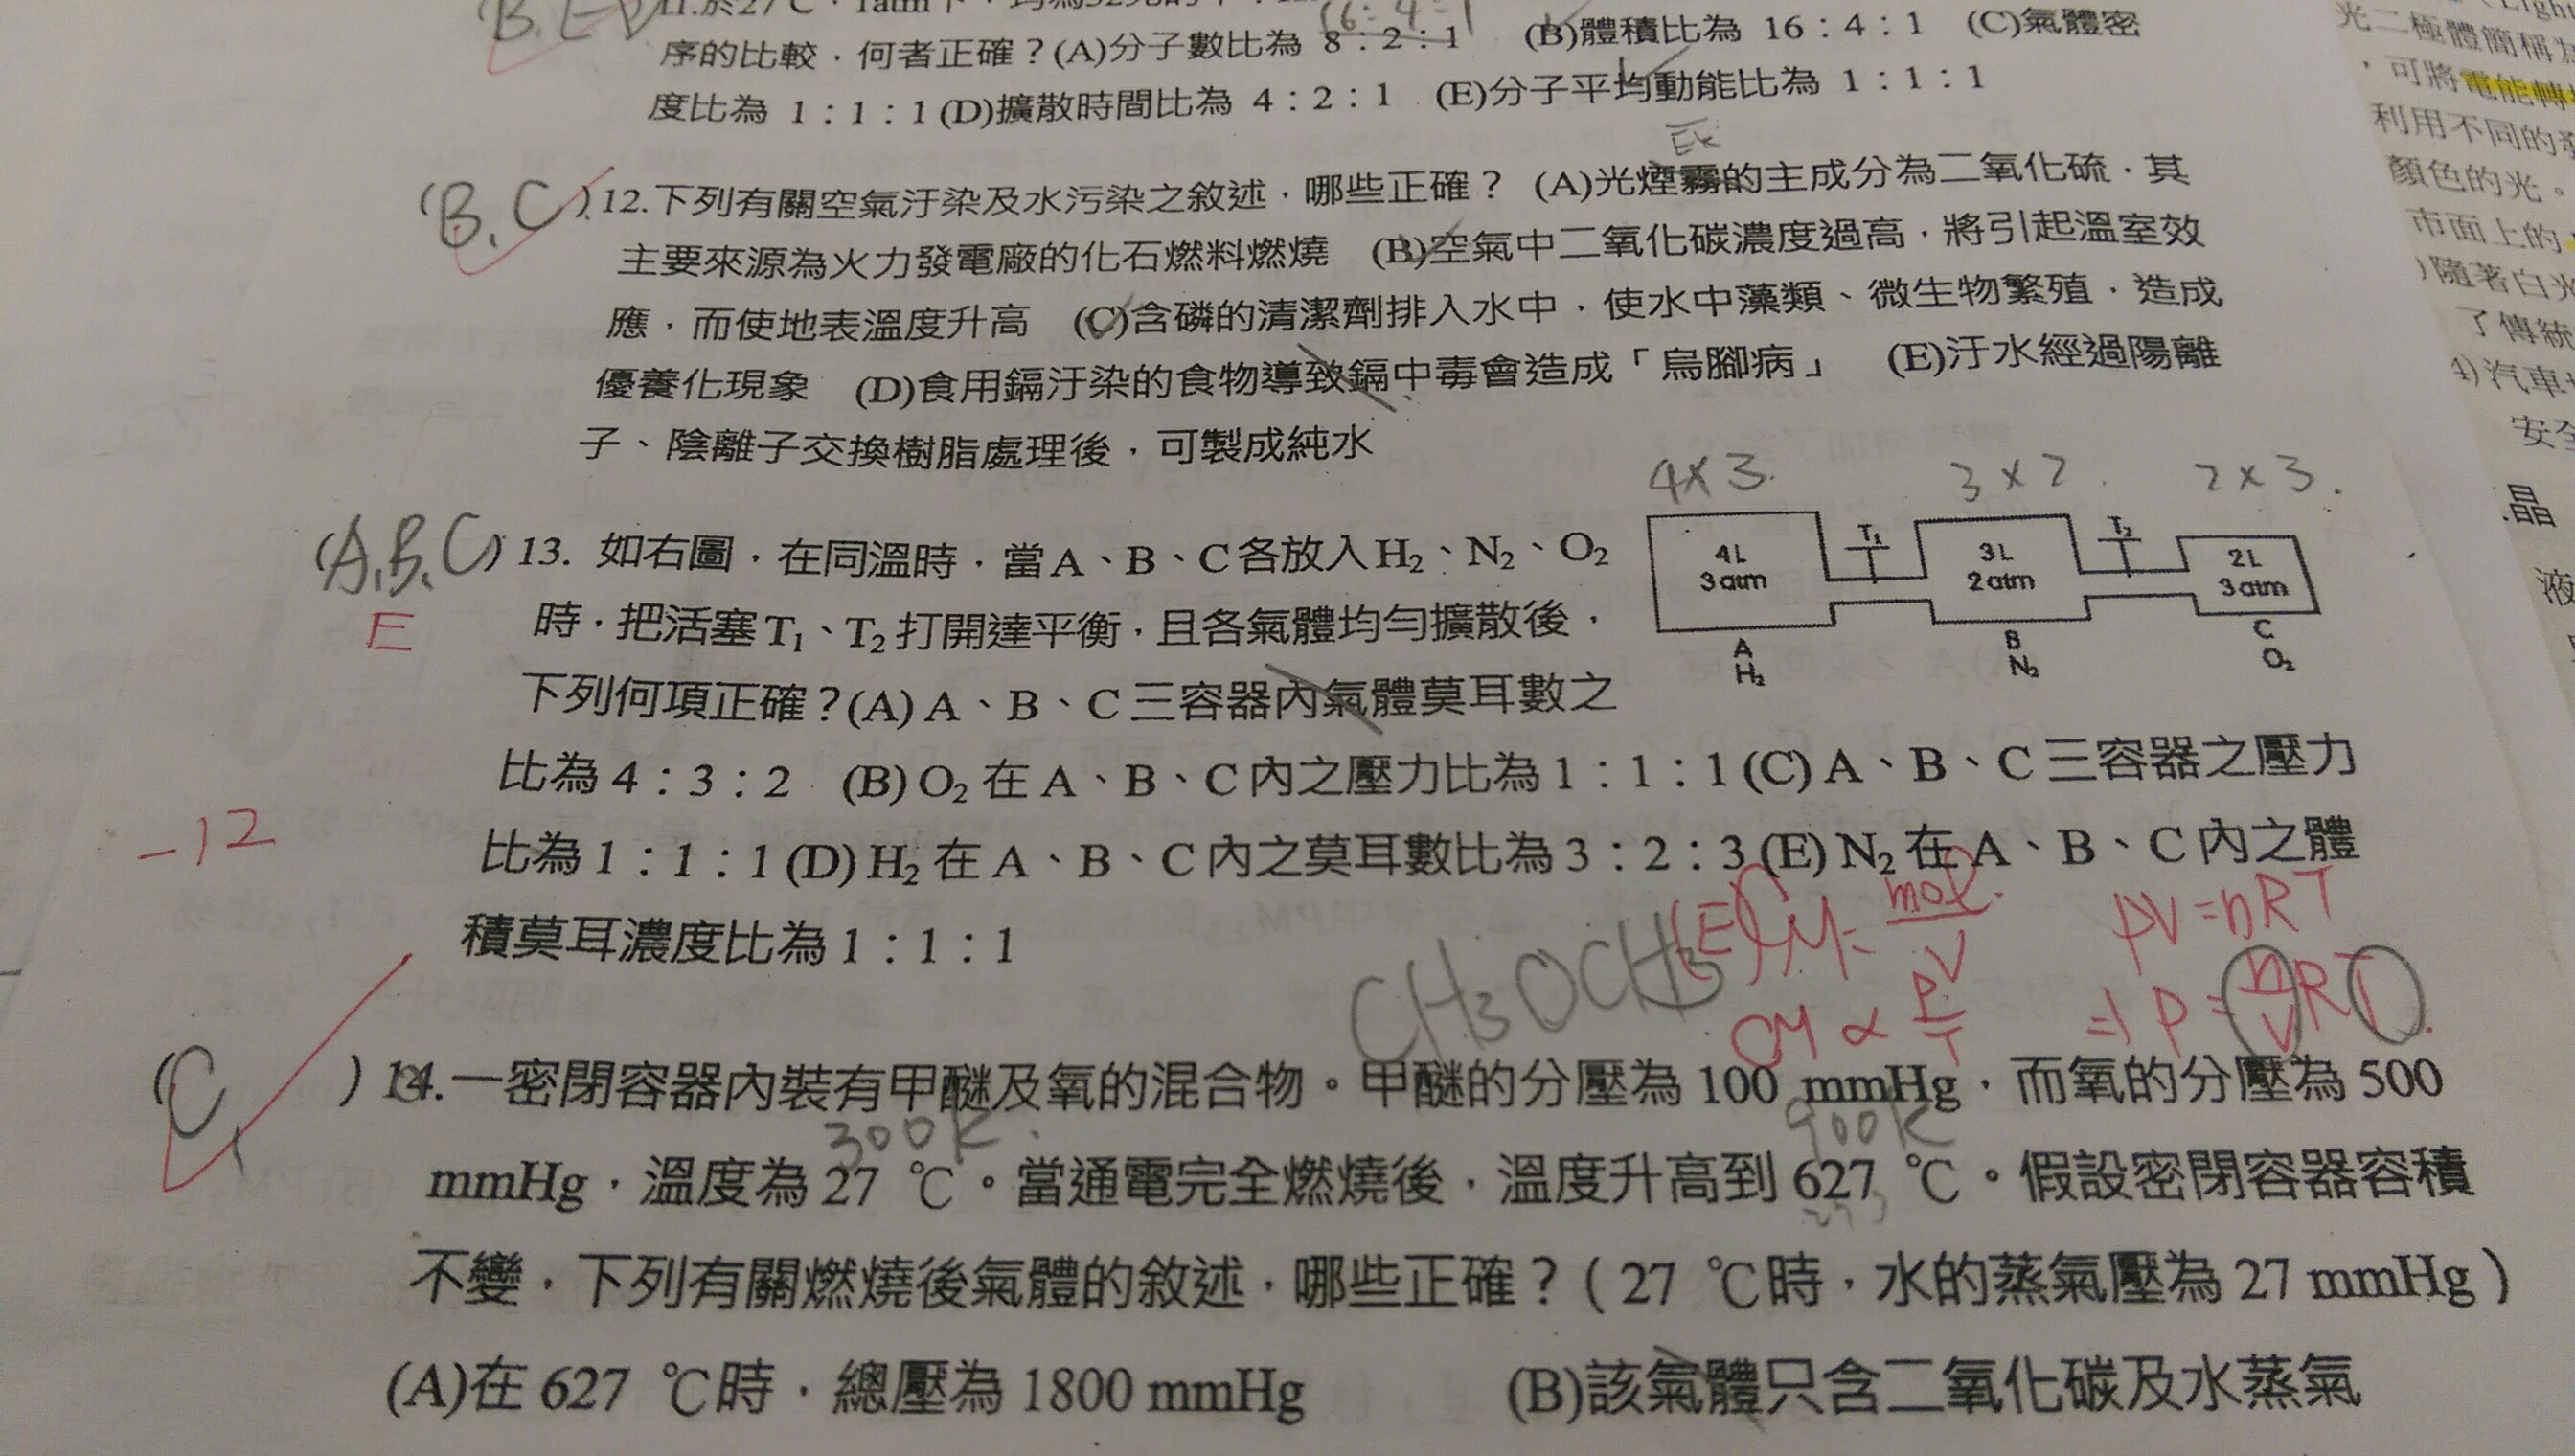 B.
序的比較，何者正確？(A)分子數比為 8：2：1 (B)體積比為 16：4：1 (C)氣體密
度比為 1：1：1 (D)擴散時間比為 4：2：1 (E)分子平均動能比為 1：1：1
EK
(B.C)12.下列有關空氣汙染及水污染之敘述，哪些正確？ (A)光煙霧的主成分為二氧化硫，其
主要來源為火力發電廠的化石燃料燃燒 (B)空氣中二氧化碳濃度過高，將引起溫室效
應，而使地表溫度升高 (C)含磷的清潔劑排入水中，使水中藻類、微生物繁殖，造成
優養化現象 (D)食用鎘汙染的食物導致鎘中毒會造成「烏腳病」 (E)汙水經過陽離
子、陰離子交換樹脂處理後，可製成純水
4×3. 3×2. 2×3.
(A.B.C)13. 如右圖，在同溫時，當A、B、C各放入H₂、N₂、O₂
E
時，把活塞T₁、T₂打開達平衡，且各氣體均勻擴散後，
下列何項正確？(A) A、B、C三容器內氣體莫耳數之
4L
3atm
T₁
3L
2atm
T₂
2L
3atm
A
H₂
B
N₂
C
O₂
比為 4：3：2 (B) O₂ 在 A、B、C 內之壓力比為 1：1：1 (C) A、B、C 三容器之壓力
-12
比為 1：1：1 (D) H₂ 在 A、B、C 內之莫耳數比為 3：2：3 (E) N₂ 在 A、B、C 內之體
積莫耳濃度比為 1：1：1
CH₃OCH₃
PV=nRT
(C)14.一密閉容器內裝有甲醚及氧的混合物。甲醚的分壓為 100 mmHg，而氧的分壓為 500
300K. 900K
mmHg，溫度為 27 ℃。當通電完全燃燒後，溫度升高到 627 ℃。假設密閉容器容積
273
不變，下列有關燃燒後氣體的敘述，哪些正確？( 27 ℃時，水的蒸氣壓為 27 mmHg )
(A)在 627 ℃時，總壓為 1800 mmHg (B)該氣體只含二氧化碳及水蒸氣
光二極體簡稱為
，可將電能轉
利用不同的
顏色的光。
市面上的
)隨著白光
了傳統
4)汽車
安全
晶
液